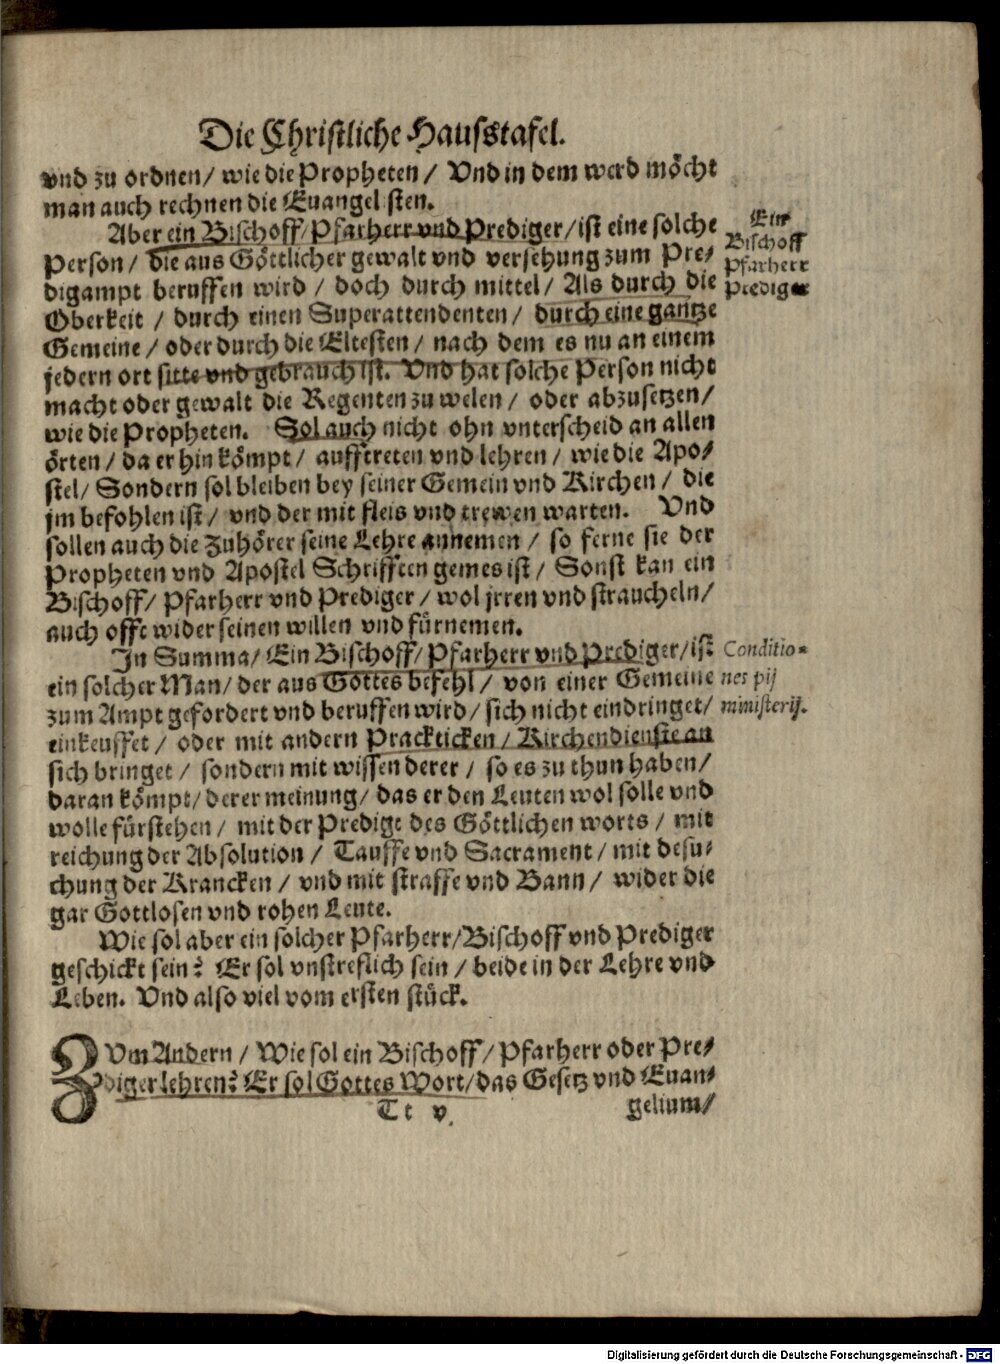 Die Christliche Haussstafel.
vnd zu ordnen/ wie die Propheten / Vnd in dem werd möcht
man auch rechnen die Euangelisten.
Aber ein Bischoff/ Pfarherr vnd Prediger/ ist eine solche
Person / die aus Göttlicher gewalt vnd versehung zum Pre-
digampt beruffen wird / doch durch mittel/ Als durch die
Oberkeit / durch einen Superattendenten / durch eine gantze
Gemeine / oder durch die Eltesten / nach dem es nu an einem
jedern ort sitte vnd gebrauch ist. Vnd hat solche Person nicht
macht oder gewalt die Regenten zu welen / oder abzusetzen/
wie die Propheten. Sol auch nicht ohn vnterscheid an allen
örten / da er hin kömpt / aufftreten vnd lehren / wie die Apo-
stel/ Sondern sol bleiben bey seiner Gemein vnd Kirchen / die
jm befohlen ist / vnd der mit fleis vnd trewen warten. Vnd
sollen auch die Zuhörer seine Lehre annemen / so ferne sie der
Propheten vnd Apostel Schrifften gemes ist / Sonst kan ein
Bischoff/ Pfarherr vnd Prediger / wol jrren vnd straucheln/
auch offt wider seinen willen vnd fürnemen.
Ein
Bischoff
Pfarherr
Prediger
In Summa/ Ein Bischoff/ Pfarherr vnd Prediger/ ist
ein solcher Man/ der aus Gottes befehl / von einer Gemeine
zum Ampt gefordert vnd beruffen wird/ sich nicht eindringet/
einkeuffet / oder mit andern Prackticken / Kirchendienste an
sich bringet / sondern mit wissen derer / so es zu thun haben/
daran kömpt/ derer meinung/ das er den Leuten wol solle vnd
wolle fürstehen / mit der Predigt des Göttlichen worts / mit
reichung der Absolution / Tauffe vnd Sacrament / mit besu-
chung der Krancken / vnd mit straffe vnd Bann / wider die
gar Gottlosen vnd rohen Leute.
Conditio-
nes pij
ministerij.
Wie sol aber ein solcher Pfarherr/ Bischoff vnd Prediger
geschickt sein? Er sol vnstreflich sein / beide in der Lehre vnd
Leben. Vnd also viel vom ersten stück.
ZVm Andern / Wie sol ein Bischoff/ Pfarherr oder Pre-
diger lehren? Er sol Gottes Wort/ das Gesetz vnd Euan-
Tt v.
gelium/
Digitalisierung gefördert durch die Deutsche Forschungsgemeinschaft - DFG